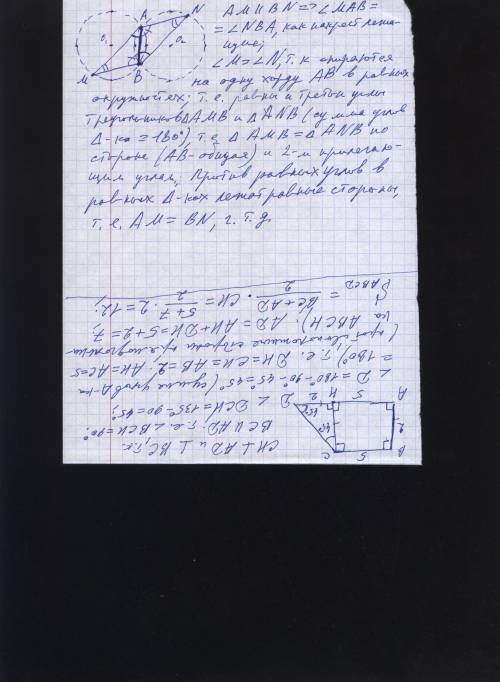 AM ∥ BN => ∠MAB =
= ∠NBA, как накрест лежа-
щие;
∠M = ∠N, т. к. опираются
на одну хорду AB в равных
окружностях; т.е. равны и третьи углы
треугольников ΔAMB и ΔANB (сумма углов
Δ-ка = 180°), т.е. ΔAMB = ΔANB по
стороне (AB - общая) и 2-м прилегаю-
щим углам; Против равных углов в
равных Δ-ках лежат равные стороны,
т. е. AM = BN, ч. т. д.
A
N
O₁
O₂
M
B
CH ⊥ AD и ⊥ BC, т.к.
BC ∥ AD, т.е. ∠BCH = 90°
∠DCH = 135° - 90° = 45°;
∠D = 180 - 90 - 45° = 45° (сумма углов Δ-ка
= 180°), т.е. DH = CH = AB = 2; AH = BC = 5
(противоположные стороны прямоугольни-
ка ABCH); AD = AH + DH = 5 + 2 = 7;
S ABCD = BC + AD / 2 · CH = 5 + 7 / 2 · 2 = 12;
B
5
C
2
45°
45°
A
5
H
2
D